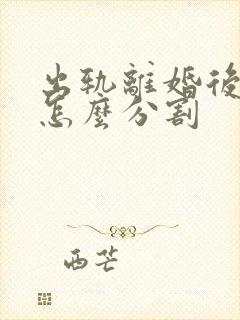 出轨離婚後
怎麼分割
西芒